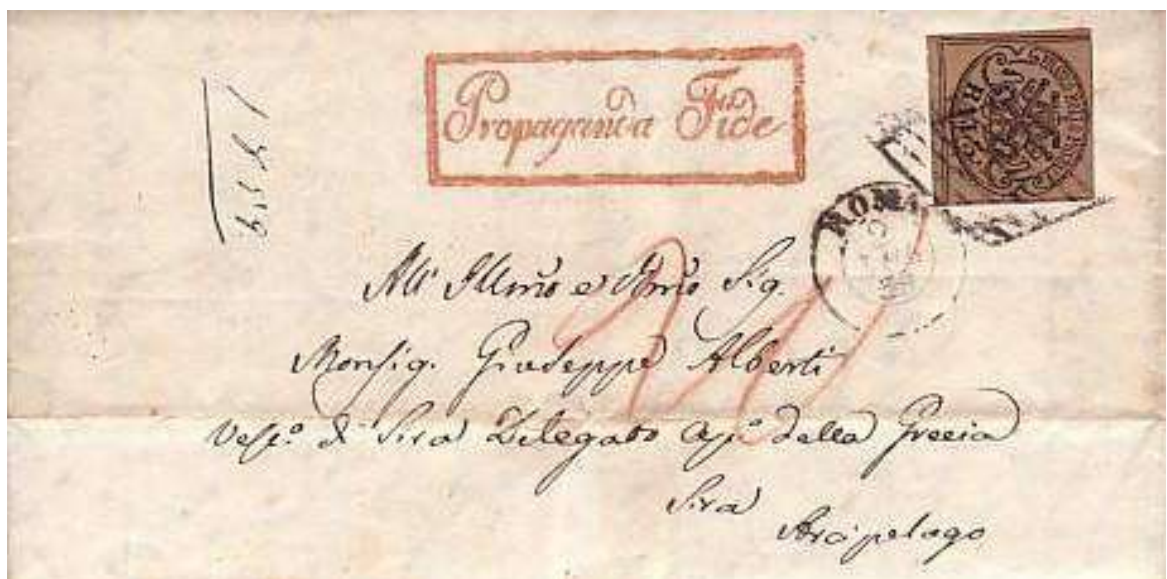 Propaganda Fide
ROMA
All' Illmo e Rmo Sig.
Monsig. Giuseppe Alberti
Vesc.o di Sira Delegato Ap.o della Grecia
Sira
Arcipelago